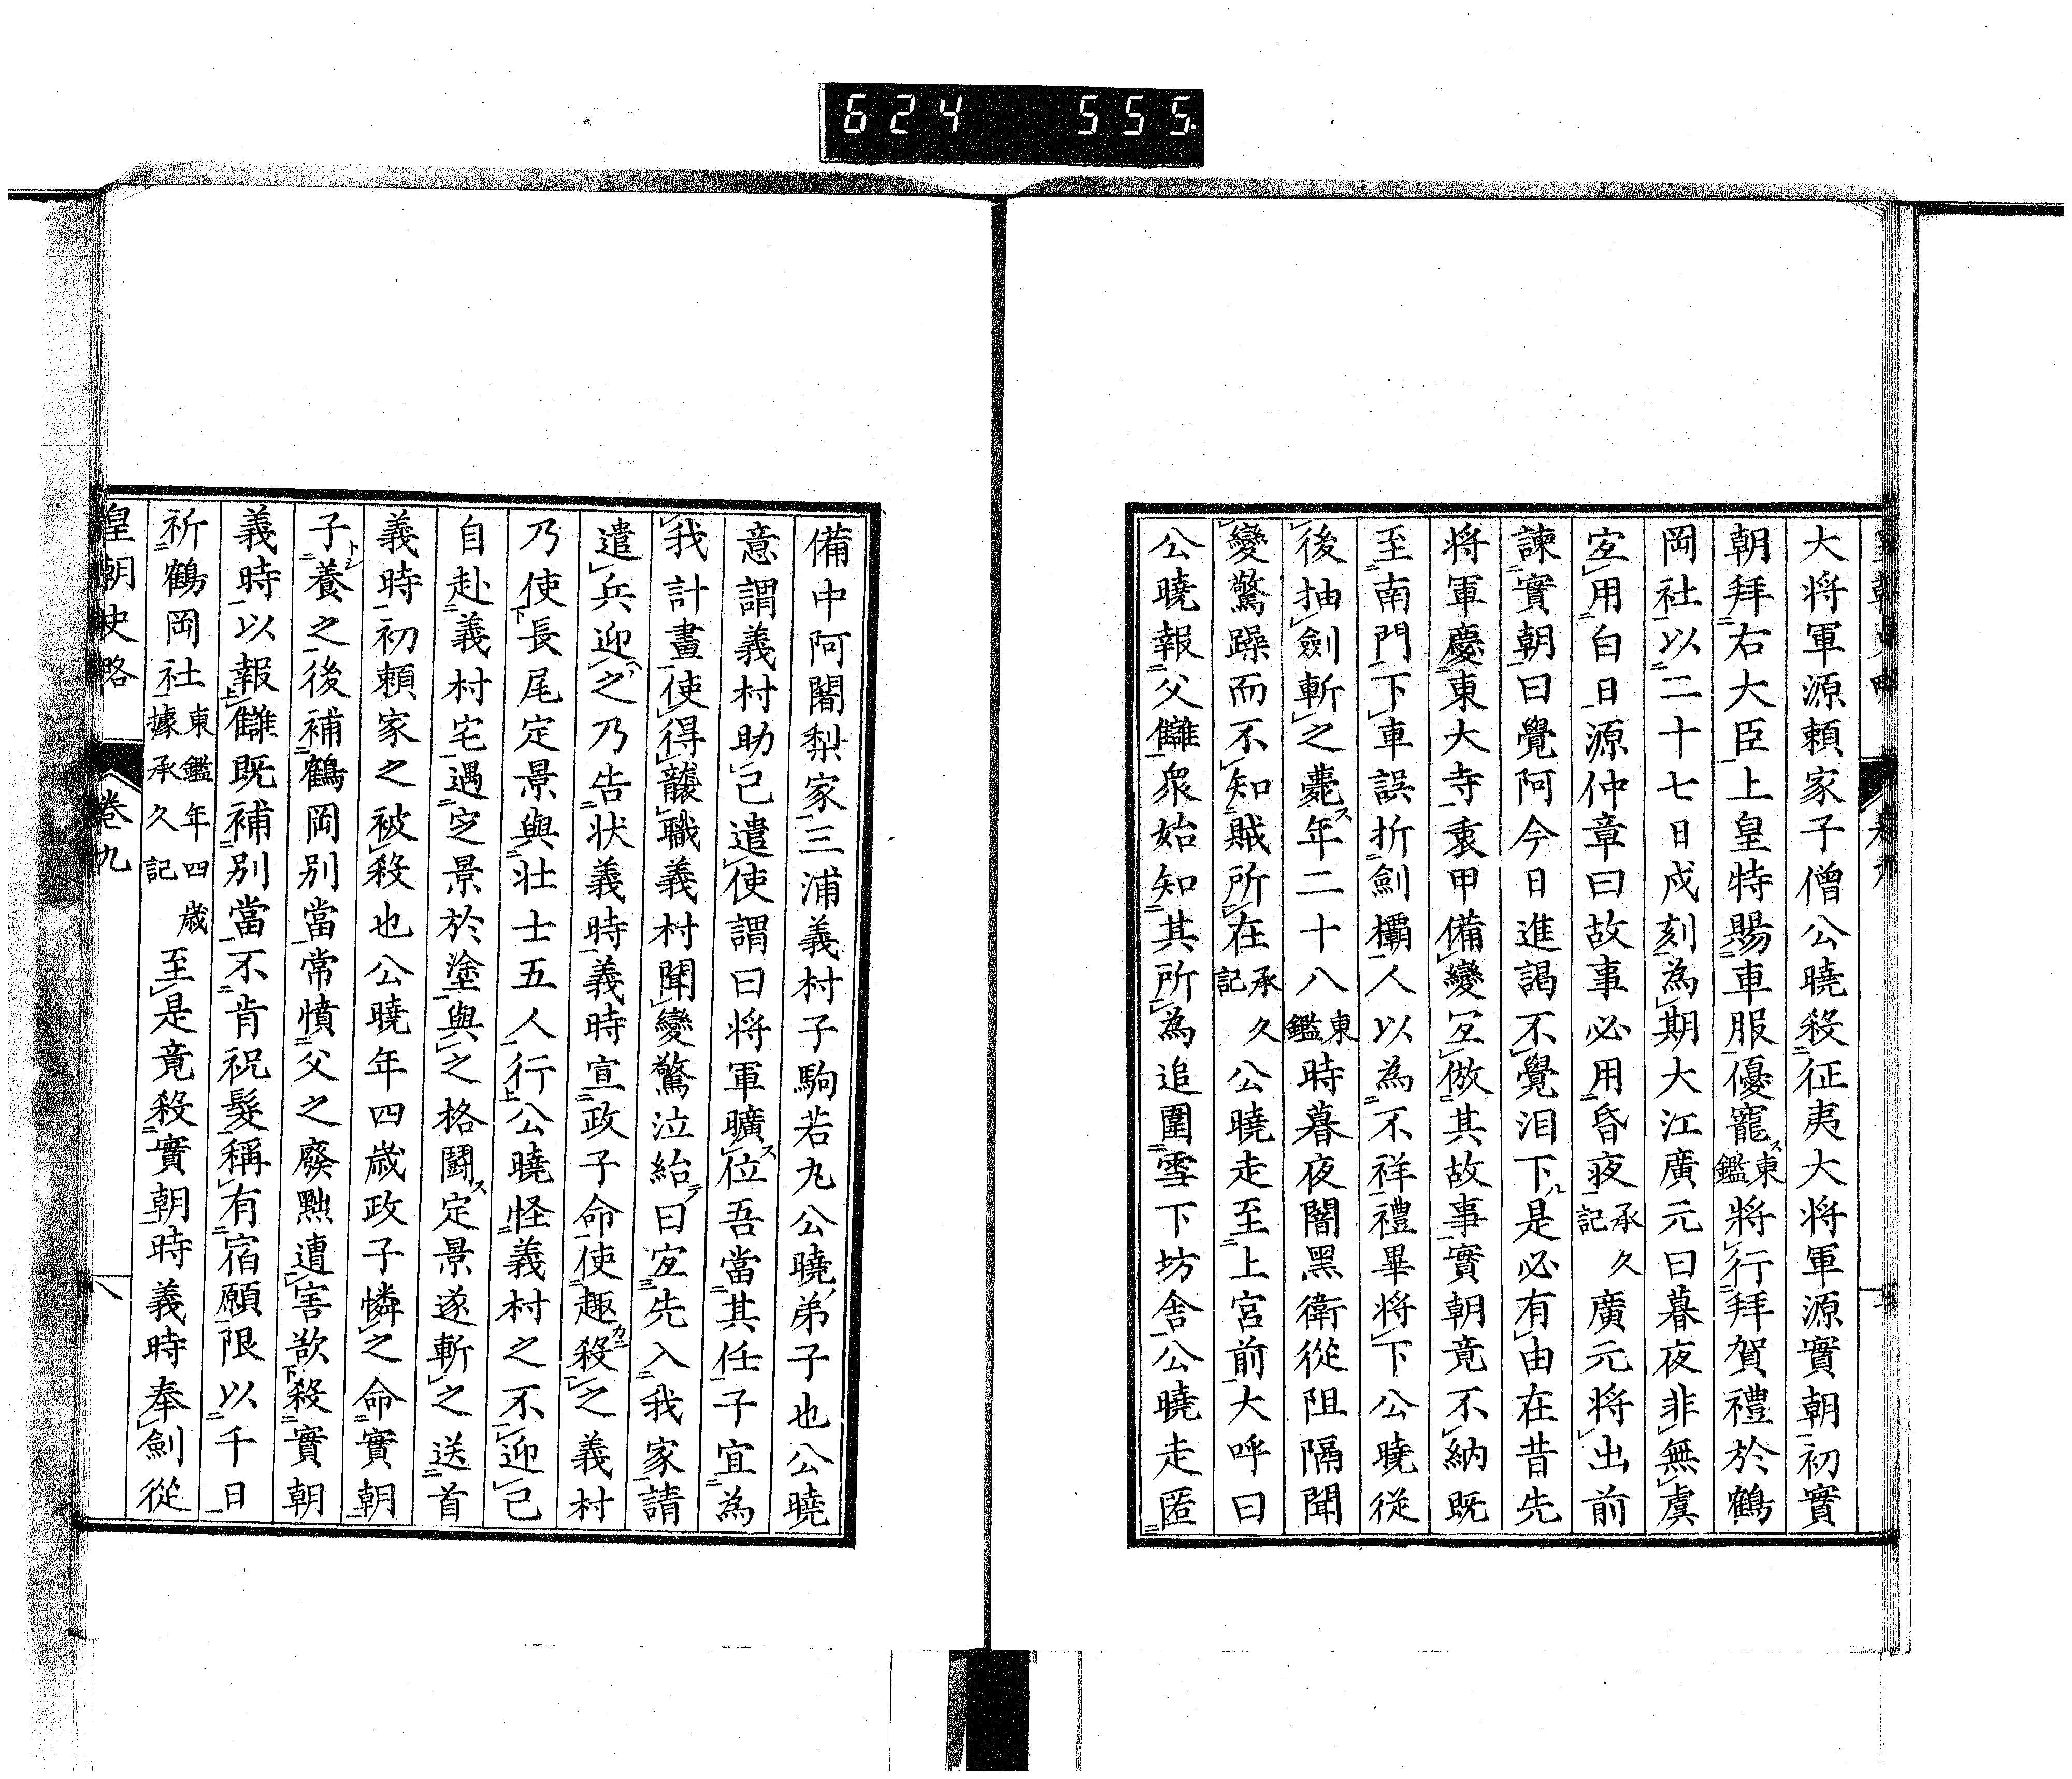 624 555
大将軍源頼家子僧公曉殺征夷大将軍源實朝初實
朝拜右大臣上皇特賜車服優寵ス東鑑將行拜賀禮於鶴
岡社以二十七日戍刻為期大江廣元曰暮夜非無虞
宐用白日源仲章曰故事必用昏夜承久記廣元將出前
諫實朝曰覺阿今日進謁不覺泪下ル是必有由在昔先
将軍慶東大寺衷甲備變宐倣其故事實朝竟不納既
至南門下車誤折劍欛人以為不祥禮畢将下公曉從
後抽劍斬之薨ス年二十八東鑑時暮夜闇黑衛從阻隔聞
變驚躁而不知賊所在承久記公曉走至上宮前大呼曰
公曉報父讎衆始知其所為追圍雪下坊舎公曉走匿
備中阿闍梨家三浦義村子駒若丸公曉弟子也公曉
意謂義村助己遣使謂曰将軍曠ス位吾當其任子宜為
我計畫使得襲職義村聞變驚泣紿テ曰宐先入我家請
遣兵迎ヘ之乃告状義時義時宣政子命使趣カニ殺之義村
乃使長尾定景與壮士五人行公曉怪義村之不迎己
自赴義村宅遇定景於塗與之格闘ス定景遂斬之送首
義時初頼家之被殺也公曉年四歳政子憐之命實朝
子トシ養之後補鶴岡別當常憤父之廢黜遭害欲殺實朝
義時以報讎既補別當不肯祝髮稱有宿願限以千日
祈鶴岡社東鑑年四歳據承久記至是竟殺實朝時義時奉劍從
皇朝史略 卷九 八